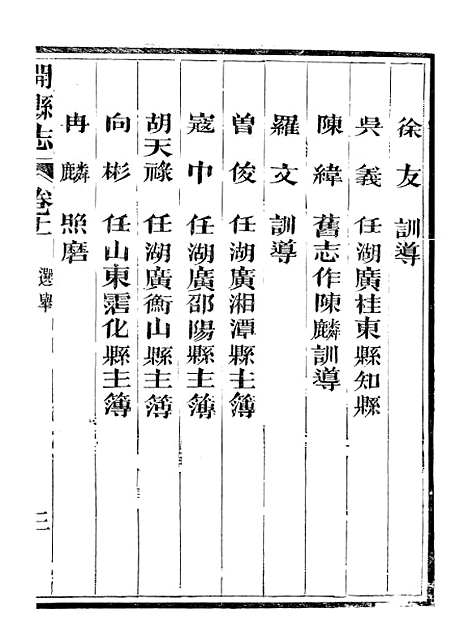 徐友 訓導
吳義 任湖廣桂東縣知縣
陳緯 舊志作陳麟訓導
羅文 訓導
曾俊 任湖廣湘潭縣主簿
寇中 任湖廣邵陽縣主簿
胡天祿 任湖廣衡山縣主簿
向彬 任山東霑化縣主簿
冉麟 照磨
開縣志 卷十 選舉 三